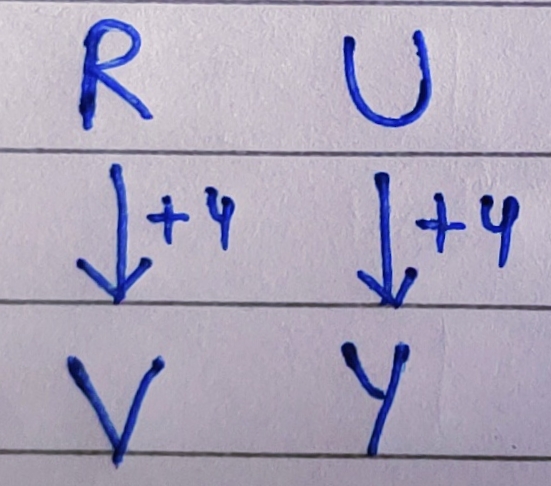 R U
↓+4 ↓+4
V Y